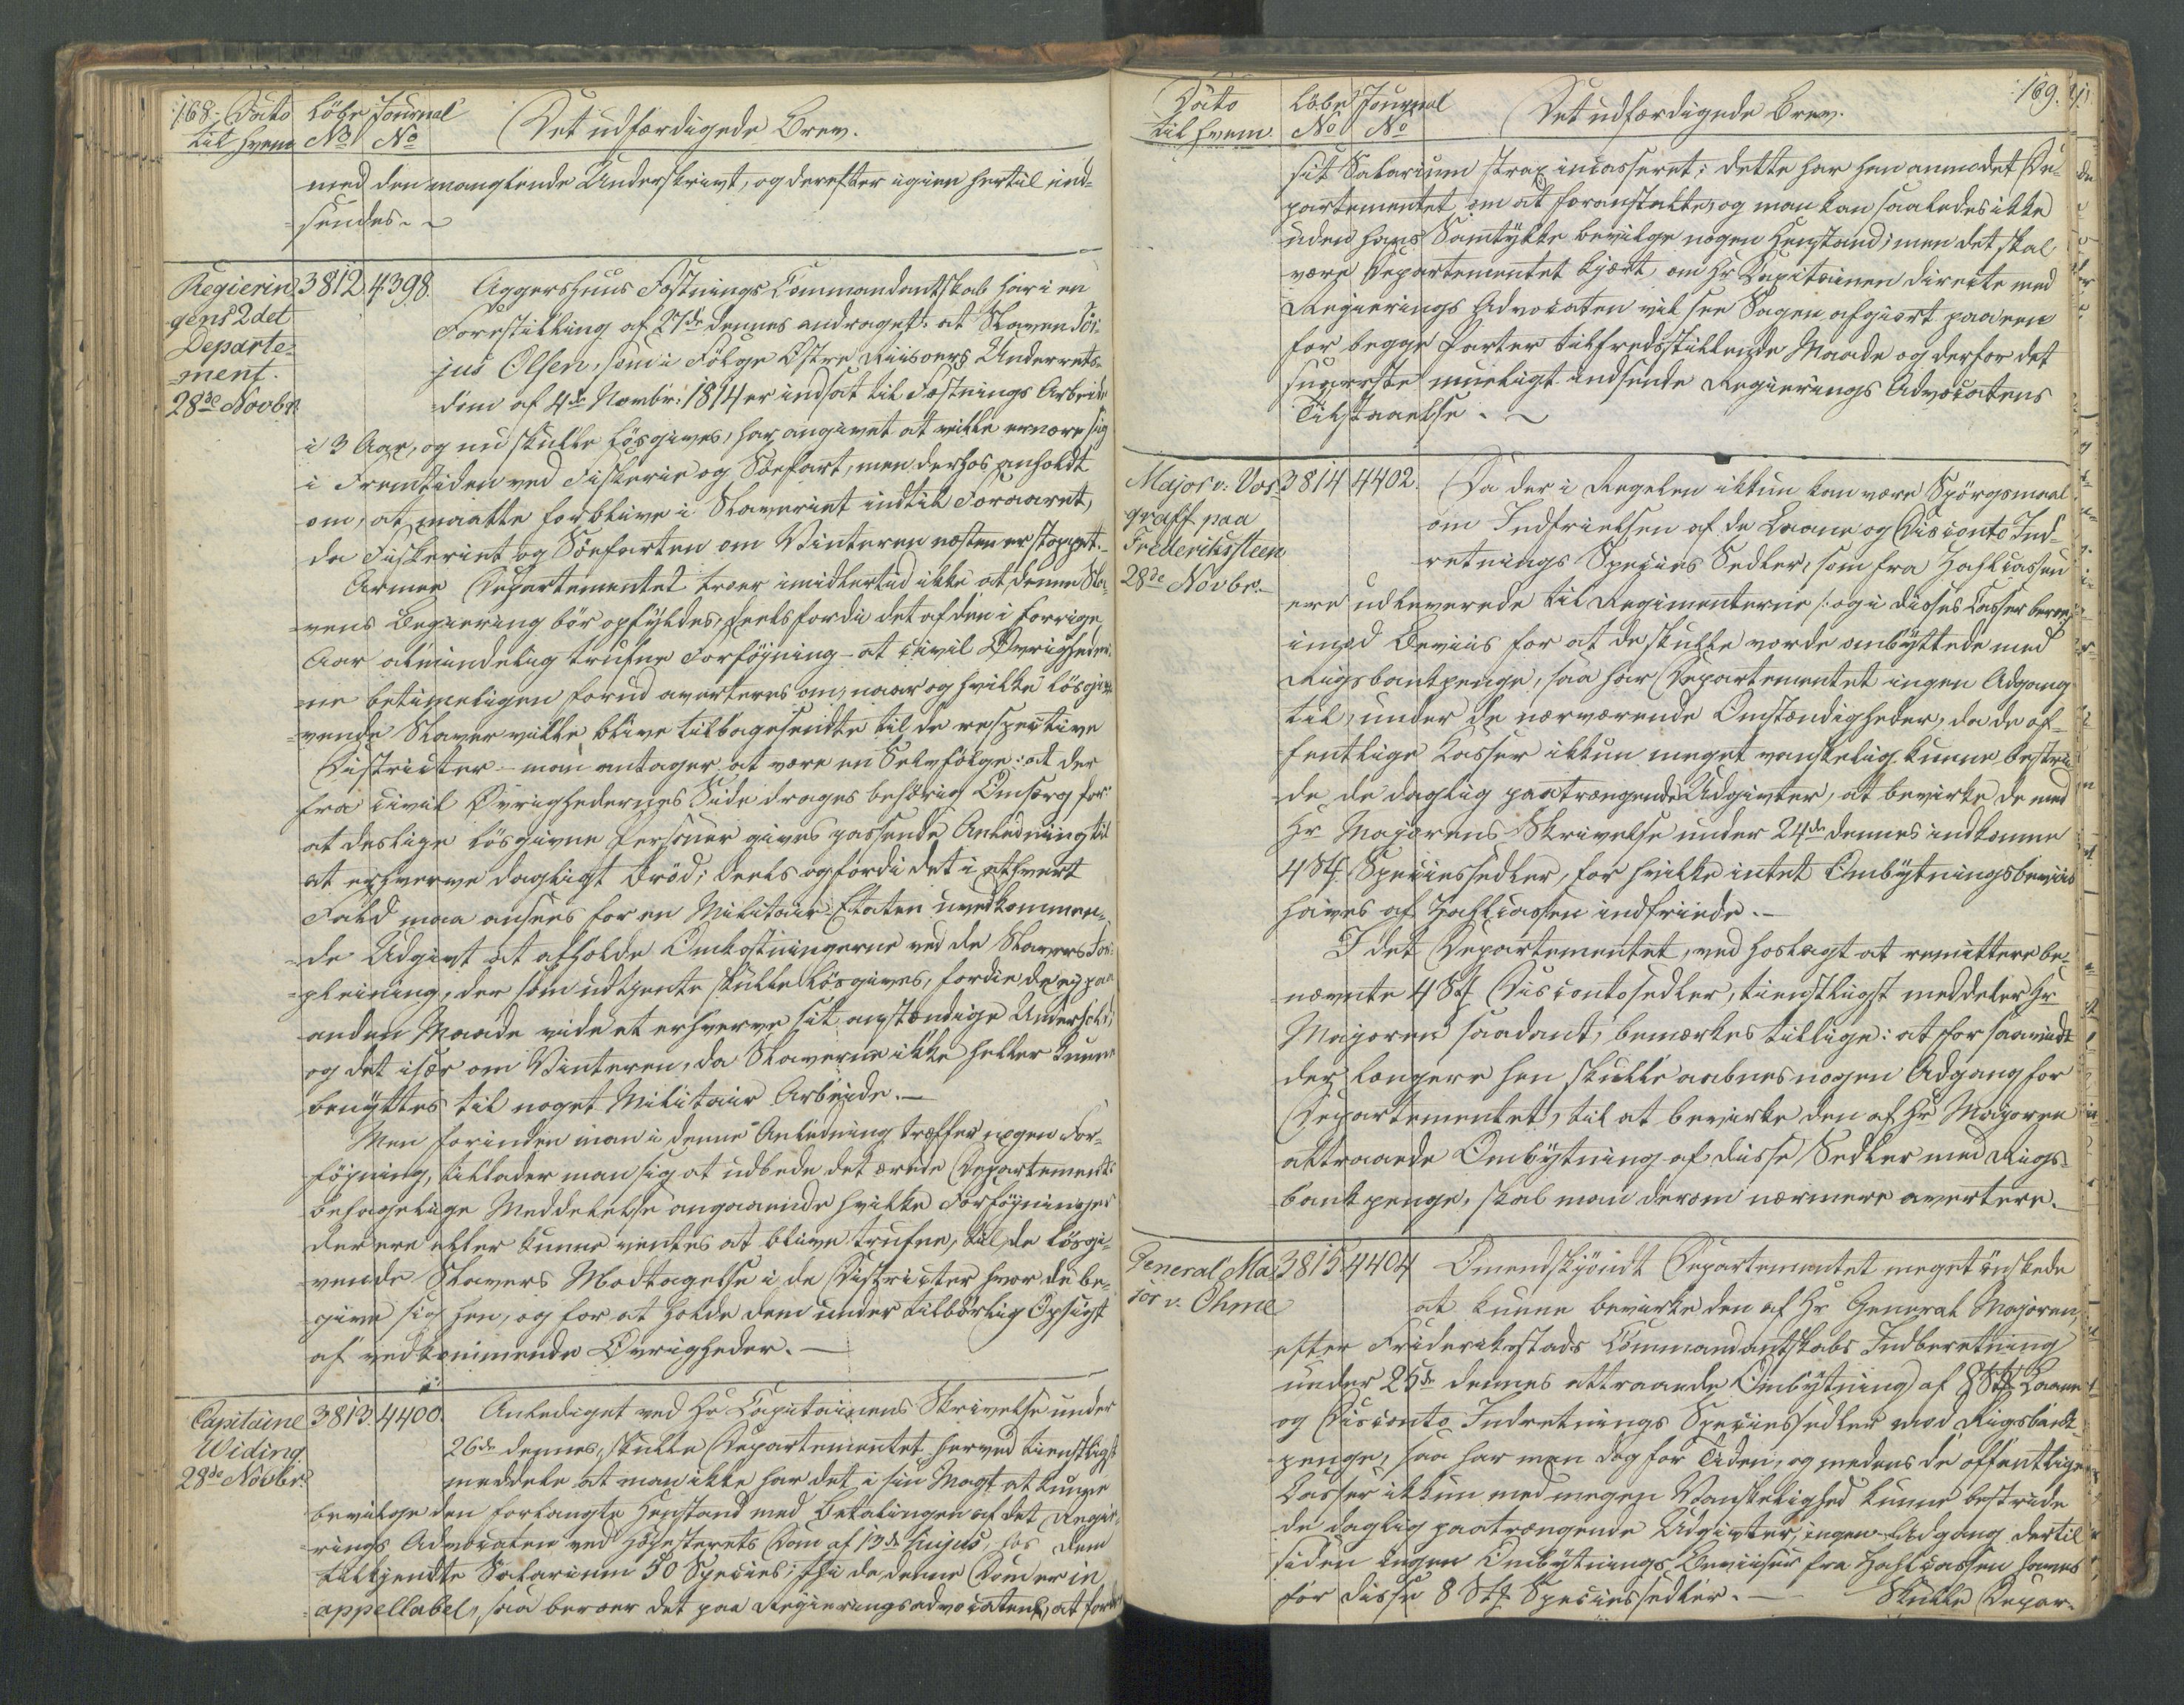 168. Dato Löbe Journal Det udfærdigede Brev.
til hvem No No
med den manglende Underskrivt, og derefter igien hertil ind-
sendes.
Regierin- 3812. 4398. Aggershuus Fæstnings Commandantskab har i en
gens 2det Forestilling af 27de dennes andraget: at Slaven Tör-
Departe- jus Olsen, som i Fölge Østre Riisöers Underrets-
ment. dom af 4de Novbr: 1814 er indsat til Fæstnings Arbeide
28de Novbr.
i 3 Aar, og nu skulle lösgives, har angivet at ville ernære sig
i Fremtiden ved Fiskerie og Söefart, men derhos anholdt
om, at maatte forblive i Slaveriet indtil Foraaret,
da Fiskeriet og Söefarten om Vinteren næsten er stoppet.
Armee Departementet troer imidlertid ikke at denne Sla-
vens Begiering bör opfyldes, deels fordi det af den i forrige
Aar almindelig trufne Forföjning - at civil Øvrigheder-
ne betimeligen forud averteres om, naar og hvilke lösgi-
vende Slaver ville blive tilbagesendte til de respective
Districter - man antager at være en Selvfölge: at der
fra civil Øvrighedernes Side drages behörig Omsorg for
at deslige lösgivne Personer gives passende Anledning til
at erhverve dagligt Bröd; deels og fordi det i ethvert
Fald maa ansees for en Militair Etaten uvedkommen-
de Udgivt at afholde Omkostningerne ved de Slavers For-
pleining, der som udtjente skulle lösgives, fordie de ej paa
anden Maade vide at erhverve sit anstændige Underhold,
og det især om Vinteren, da Slaverne ikke heller kunne
benyttes til noget Militair Arbeide.
Men forinden man i denne Anledning træffer nogen For-
föjning, tillader man sig at udbede det ærede Departements
behagelige Meddelelse angaaende hvilke Forföjninger
der ere eller kunne ventes at blive trufne, til de lösgi-
vende Slavers Modtagelse i de Districter hvor de be-
give sig hen, og for at holde dem under tilbörlig Opsigt
af vedkommende Øvrigheder.
Capitaine 3813. 4400. Anlediget ved Hr Capitainens Skrivelse under
Widing 26de dennes, skulle Departementet herved tienstligst
28de Novbr. meddele at man ikke har det i sin Magt at kunne
bevilge den forlangte Henstand med Betalingen af det Regie-
rings Advocaten ved Höiesterets Dom af 13de hujus, hos Dem
tilkjendte Salarium 50 Species; thi da denne Dom er in-
appellabel, saa beroer det paa Regieringsadvocaten, at fordre
Dato Löbe Journal Det udfærdigede Brev. 169.
til hvem. No No
sit Salarium strax incasseret; dette har han anmodet De-
partementet om at foranstalte, og man kan saaledes ikke
uden hans Samtykke bevilge nogen Henstand; men det skal
være Departementet kjært, om Hr Capitainen directe med
Regierings Advocaten vil see Sagen afgiort paa en
for begge Parter tilfredsstillende Maade og derfor det
snareste mueligt indsende Regierings Advocatens
Tilstaaelse.
Major v. Vos- 3814 4402. Da der i Regelen ikkun kan være Spörgsmaal
graff paa om Indfrielsen af de Laane og Disconto Ind-
Frederikssteen retnings Species Sedler, som fra Zahlcassen
28de Novbr.
ere udleverede til Regimenterne /: og i disses Casser beroe :/
imod Beviis for at de skulle vorde ombyttede med
Rigsbankpenge, saa har Departementet ingen Adgang
til, under de nærværende Omstændigheder, da de of-
fentlige Casser ikkun meget vanskelig kunne bestri-
de de daglig paatrængende Udgivter, at bevirke de med
Hr Majorens Skrivelse under 24de dennes indkomne
4 Stk. Speciessedler, for hvilke intet Ombytningsbeviis
haves af Zahlcassen indfriede.
I det Departementet, ved hoslagt at remittere be-
nævnte 4 Stk Discontosedler, tienstligst meddeler Hr
Majoren saadant, bemærkes tillige: at for saavidt
der længere hen skulle aabnes nogen Adgang for
Departementet, til at bevirke den af Hr Majoren
attraaede Ombytning af disse Sedler med Rigs-
bankpenge, skal man derom nærmere avertere.
General Ma- 3815 4404 Omendskjöndt Departementet meget önskede
jor v. Ohme at kunne bevirke den af Hr General Majoren,
efter Frideriksstads Commandantskabs Indberetning
under 25de dennes attraaede Ombytning af 8 Stk Laane
og Disconto Indretnings Speciessedler mod Rigsbank-
penge, saa har man dog for Tiden, og medens de offentlige
Casser ikkun med megen Vanskelighed kunne bestride
de daglig paatrængende Udgivter ingen Adgang dertil
siden ingen Ombytnings Beviiser fra Zahlcassen haves
for disse 8 Stk Speciessedler. Skulle Depar-